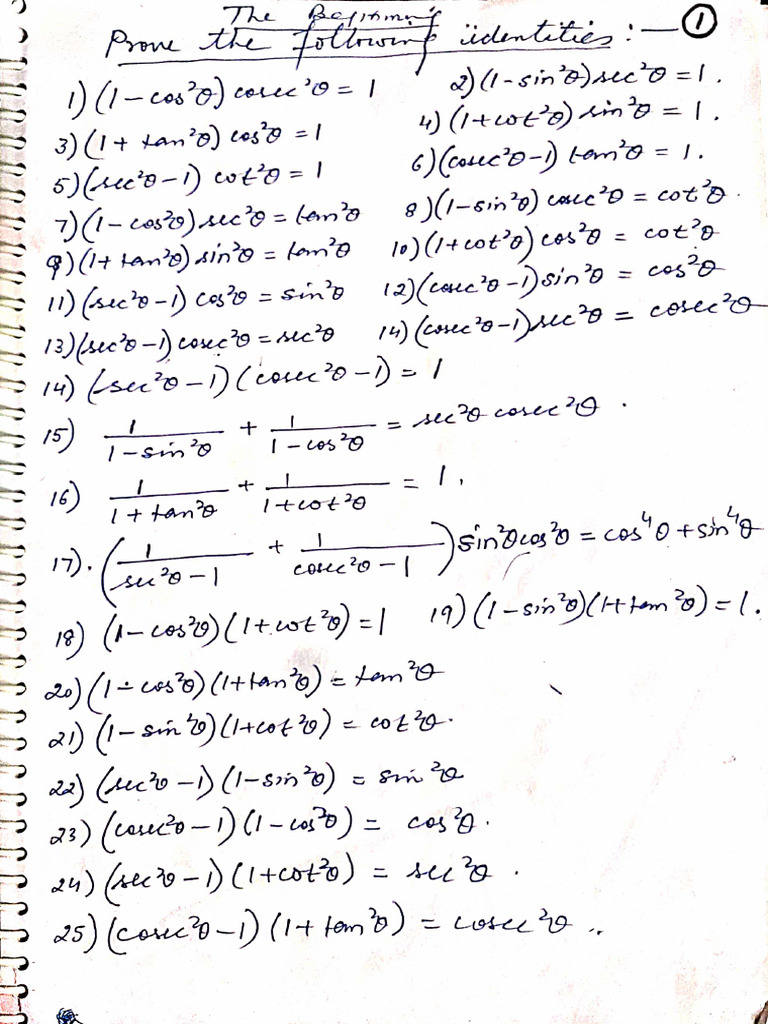 The Beginning
Prove the following identities :— ①
1) (1 - cos²θ) cosec²θ = 1 2) (1 - sin²θ) sec²θ = 1.
3) (1 + tan²θ) cos²θ = 1 4) (1 + cot²θ) sin²θ = 1.
5) (sec²θ - 1) cot²θ = 1 6) (cosec²θ - 1) tan²θ = 1.
7) (1 - cos²θ) sec²θ = tan²θ 8) (1 - sin²θ) cosec²θ = cot²θ.
9) (1 + tan²θ) sin²θ = tan²θ 10) (1 + cot²θ) cos²θ = cot²θ
11) (sec²θ - 1) cos²θ = sin²θ 12) (cosec²θ - 1) sin²θ = cos²θ
13) (sec²θ - 1) cosec²θ = sec²θ 14) (cosec²θ - 1) sec²θ = cosec²θ
14) (sec²θ - 1) (cosec²θ - 1) = 1
15) 1/(1 - sin²θ) + 1/(1 - cos²θ) = sec²θ cosec²θ.
16) 1/(1 + tan²θ) + 1/(1 + cot²θ) = 1.
17). (1/(sec²θ - 1) + 1/(cosec²θ - 1)) sin²θ cos²θ = cos⁴θ + sin⁴θ
18) (1 - cos²θ) (1 + cot²θ) = 1 19) (1 - sin²θ) (1 + tan²θ) = 1.
20) (1 - cos²θ) (1 + tan²θ) = tan²θ
21) (1 - sin²θ) (1 + cot²θ) = cot²θ.
22) (sec²θ - 1) (1 - sin²θ) = sin²θ
23) (cosec²θ - 1) (1 - cos²θ) = cos²θ.
24) (sec²θ - 1) (1 + cot²θ) = sec²θ.
25) (cosec²θ - 1) (1 + tan²θ) = cosec²θ..